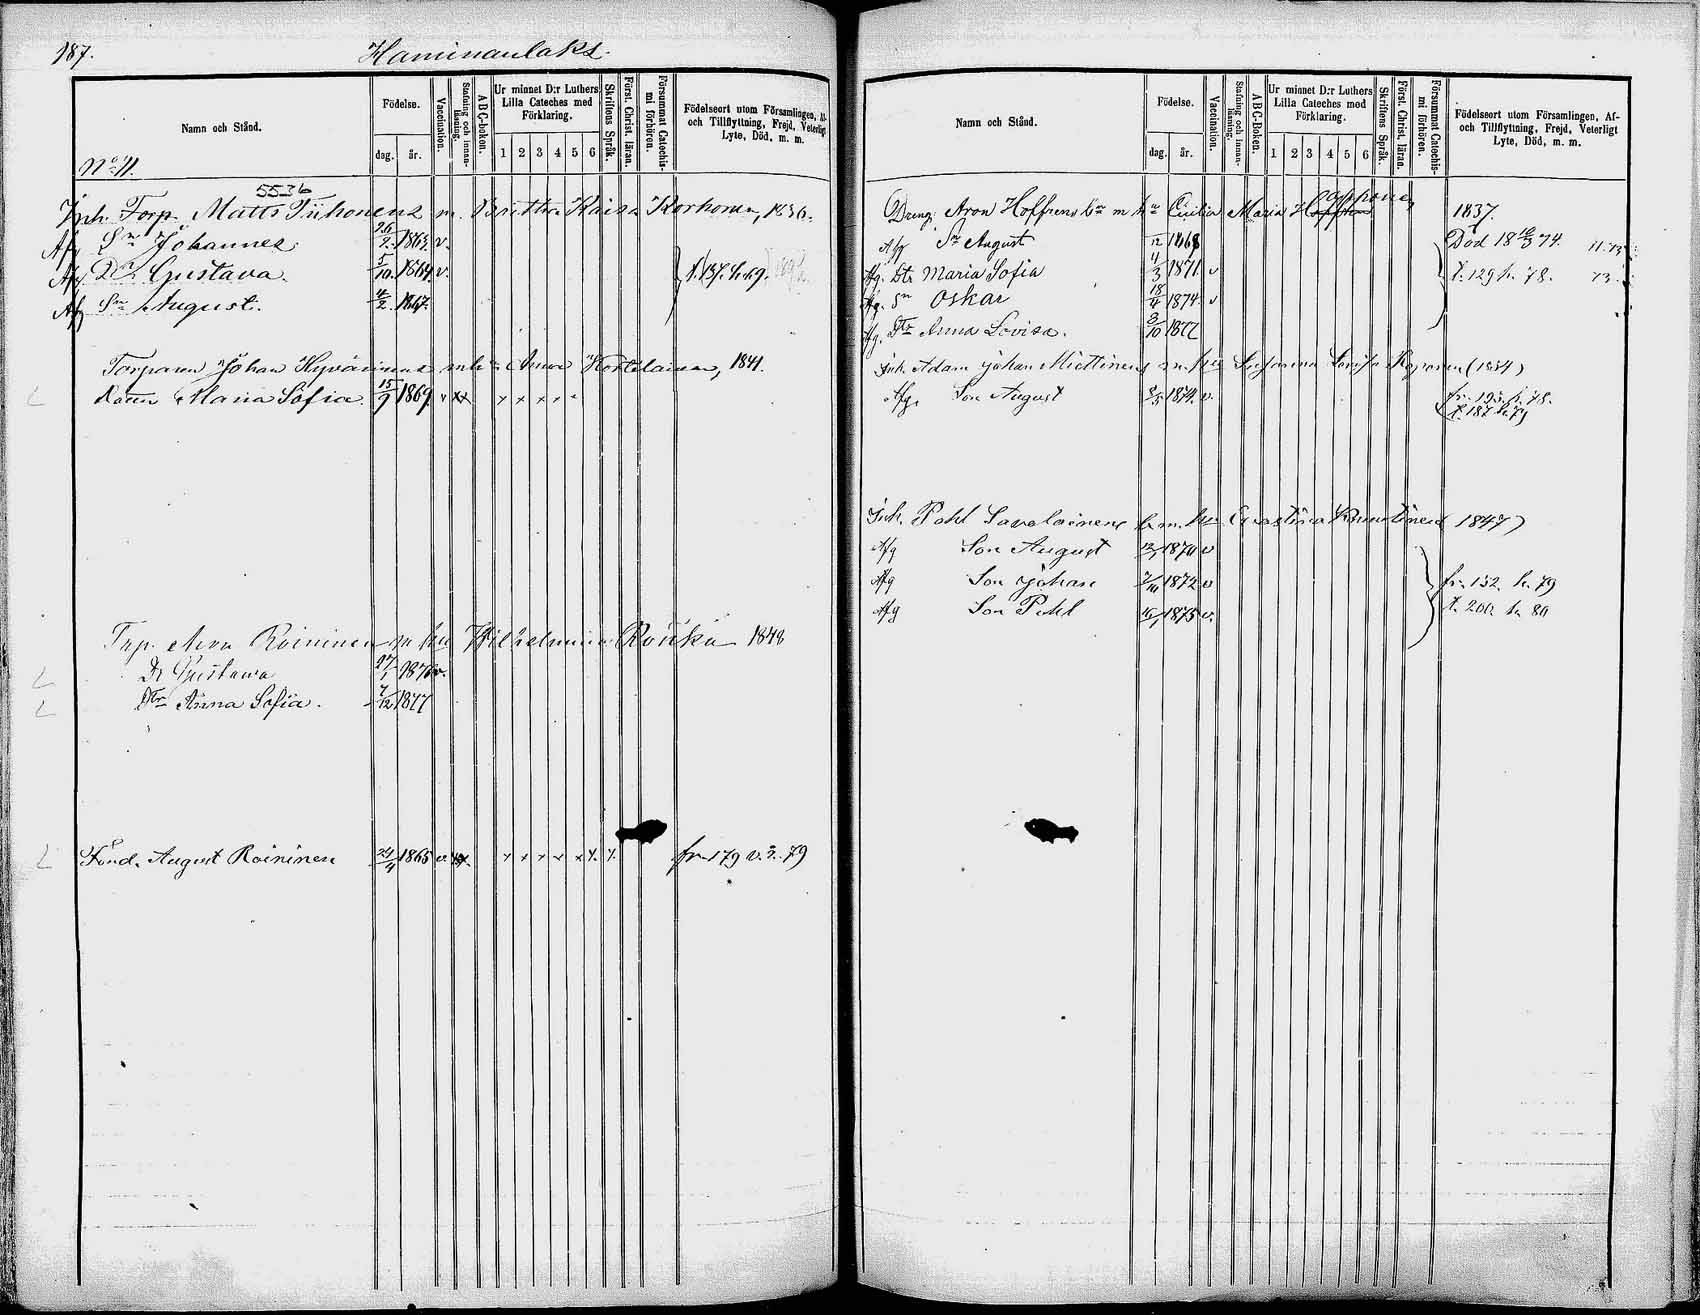 187. Haminanlaks.
Namn och Stånd.
Födelse.
dag. år.
Vaccination.
Stafning och innan-läsning.
A B C-boken.
Ur minnet D:r Luthers Lilla Cateches med Förklaring.
1 2 3 4 5 6
Skriftens Språk.
Först. Christ. läran.
Försummat Catechis-mi förhören.
Födelseort utom Församlingen, Af- och Tillflyttning, Frejd, Veterligt Lyte, Död, m. m.
No 11.
5536
Inh. Torp. Matts Tiihonens m. Britha Kaisa Korhonen, 1836.
Afg Sn Johannes. 26/2. 1863. v.
Afg Dr Gustava. 5/10. 1864. v. t. 137. h. 69.
Afg Sn August. 4/2. 1867.
Torparen Johan Hyvärinens m h Anna Kortelainen, 1841.
Dottern Maria Sofia. 15/9 1869. v xx x x x x
Torp. Aron Roininen m hu Wilhelmina Rouka 1848
Dr Gustawa 27/1 1876 v.
Dtr Anna Sofia. 7/12 1877
Sond. August Roininen 24/4 1865 v. xx x x x x x x x. fr. 179 v. 3. 79
Namn och Stånd.
Födelse.
dag. år.
Vaccination.
Stafning och innan-läsning.
A B C-Boken.
Ur minnet D:r Luthers Lilla Cateches med Förklaring.
1 2 3 4 5 6
Skriftens Språk.
Först. Christ. läran.
Försummat Catechis-mi förhören.
Födelseort utom Församlingen, Af- och Tillflyttning, Frejd, Veterligt Lyte, Död, m. m.
Dreng. Aron Hoffrens bn m h Cecilia Maria 1837.
Afg Sn August /12 1868 Död 18 74. 11. 73
Afg. Dtr Maria Sofia 4/3 1871. v t. 129 h. 78. 73
Afg. Sn Oskar 18/4 1874. v
Afg. Dtr Anna Lovisa. 8/10 1877
Inh. Adam Johan Miettinens m. hu Susanna Lovisa Koponen (1854)
Afg. Son August 1874. v. fr. 195. h. 78.
t. 187 h. 79
Inh. Pohl Savolainens b m. hu 1847)
Afg Son August 1870 v
Afg Son Johan 1872 v fr. 152. h. 79
Afg Son Pohl 1875 v. t. 200. h. 80